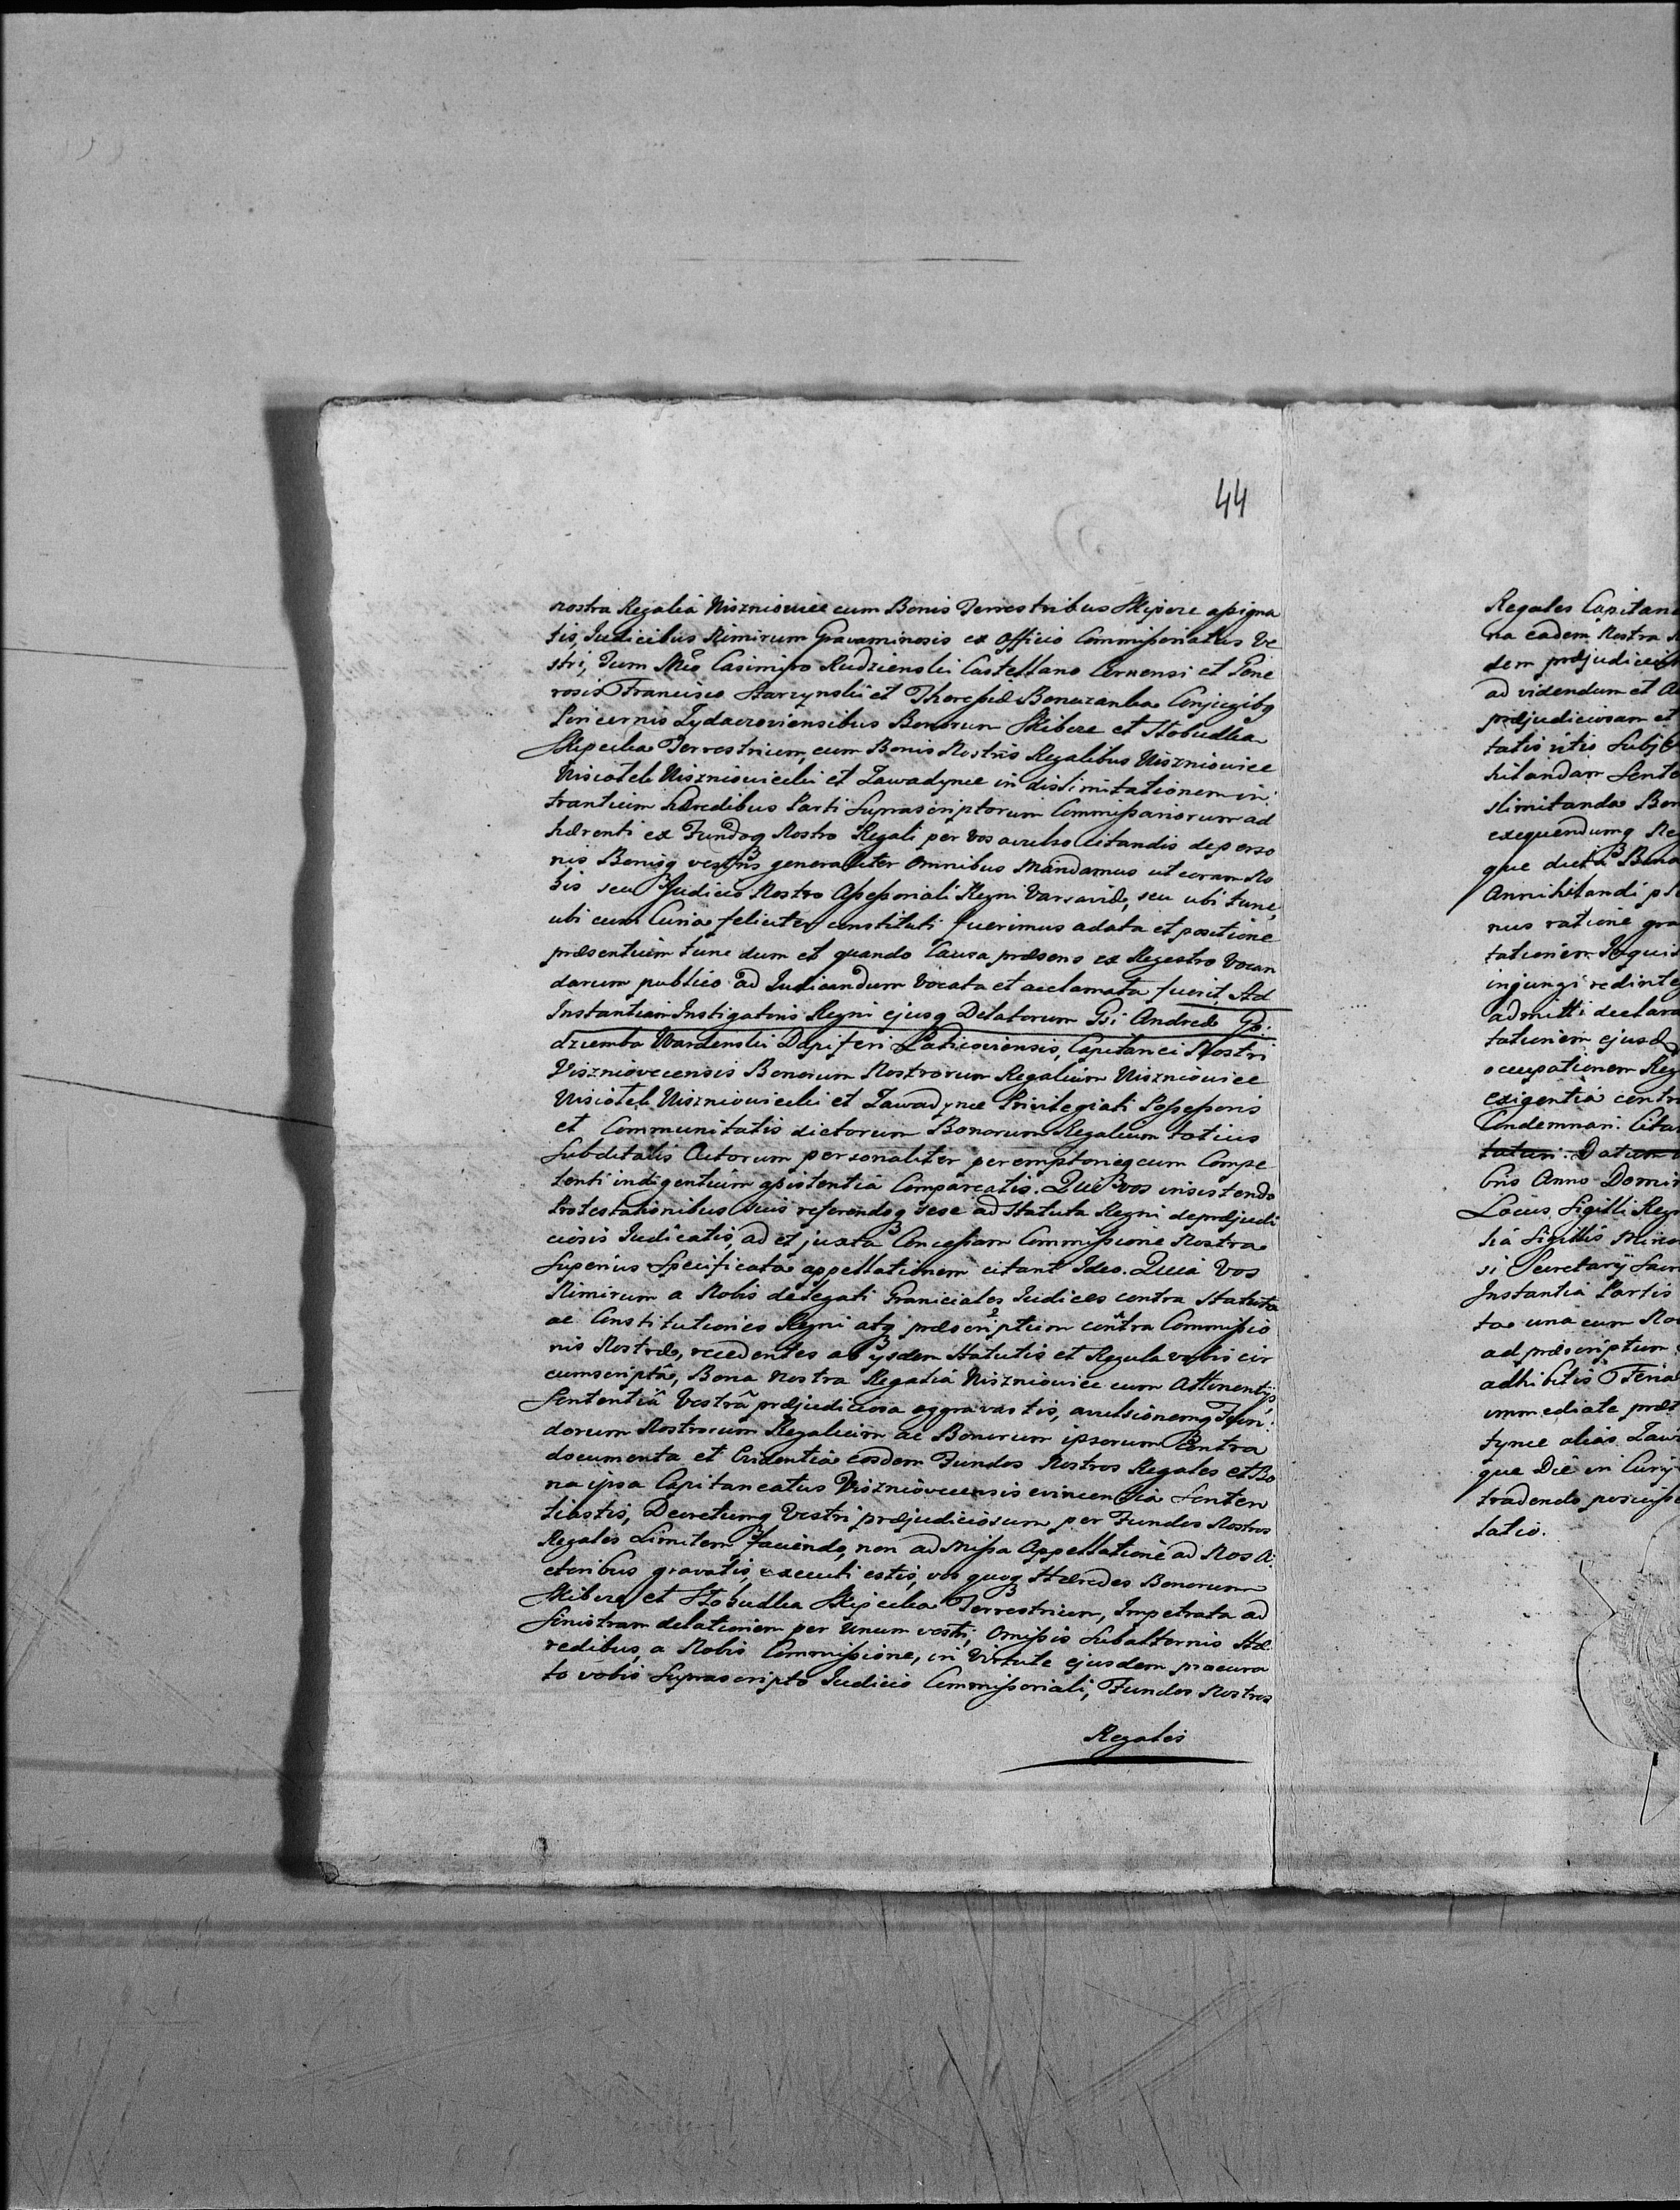 44
nostra Regalia Niszniowice cum Bonis Terrestribus Skipcze assigna
tis, Iudicibus Nimirum Gravaminosis ex Officio Commissoriatus Ve
stri, Tum Mco Casimiro Rudzienski Castellano Cernensi et Gene
rosis Francisco Starzynski et Theressiæ Conjugibq
Pincernis Bonorum Skibcze et Stobudka
Skipecka Terrestrium, cum Bonis Nostris Regalibus Niszniowice
Nisiotek Niszniowiecki et Zawadynce in dislimitationem in:
trantium hæredibus Parti Suprascriptorum Commissariorum ad
hærenti ex Fundoq Nostro Regali per vos avulso citandis de perso
nis Bonisq vestris generaliter omnibus Mandamus ut coram No
bis seu Judicio Nostro Assessoriali Regni Varsaviæ, seu ubi tunc,
ubi cum Curia feliciter constituti fuerimus a data et positione
præsentium tunc dum et quando Causa præsens ex Regestro Vocan
darum publico ad Iudicandum Vocata et acclamata fuerit, Ad
Instantiam Instigatoris Regni ejusq Delatorum Gsi Andreæ Go:
dziemba Wardenski Dapiferi Capitanei Nostri
Viszniovecensis Bonorum Nostrorum Regalium Niszniowice
Nisiotek Niszniowiecki et Zawadynce Privilegiati Possessoris
et Communitatis dictorum Bonorum Regalium totius
Subditalis Actorum personaliter peremptorieq cum Compe
tenti indigentium assistentia Compareatis. Qui vos insistendo
Protestationibus suis referendoq sese ad Statuta Regni de præjudi
ciosis Iudicatis, ad et juxta Concessam Commissione Nostra
Superius Specificata appellationem citant Ideo. Quia Vos
Nimirum a Nobis delegati Graniciales Iudices contra Statuta
ac Constitutiones Regni atq præscriptum contra Commissio
nis Nostræ, recedentes ab ijsdem Statutis et Regula vobis cir
cumscriptâ, Bona Nostra Regalia Niszniowice cum Attinentijs,
Sententiâ Vestrâ præjudiciosa aggravastis, avulsionemq Fun:
dorum Nostrorum Regalium ac Bonorum ipsorum Contra
documenta et Evidentia eosdem Fundos Nostros Regales et Bo
na ipsa Capitaneatus Viszniovecensis evincentia Senten
tiastis, Decretumq Vestri præjudiciosum per Fundos Nostros
Regales Limitem faciendo, non admissa Appellatione ad Nos A:
ctoribus gravatis, executi estis, vos quoq Hæredes Bonorum
Skibcze et Stobudka Skipecka Terrestrium, Impetrata ad
Sinistram delationem per Unum vestri, Omissis Subalternis Hæ
redibus, a Nobis Commissione, in Virtute ejusdem procura
to vobis Suprascripto Iudicio Commissoriali, Fundos Nostros
Regales
Regales Capitane
na eadem Nostra
dem præjudicio
ad videndum et
præjudiciosam et
tatis
Sente
Bon
exequendumq Re
que dicta Bona
Annihilandi
nus ratione gra
tationem
injungi redinte
admitti declara
tationem ejusd
occupationem Reg
exigentia contr
Condemnari. Cita
tatum. Datum
bris Anno Domin
Locus Sigilli Regn
Sigillis Mino
si Secretarij
Instantia Partis
ta una cum No
ad præscriptum
adhibitis
immediate præ
tynce alias Zaw
que Die in
tradendo
tatio.